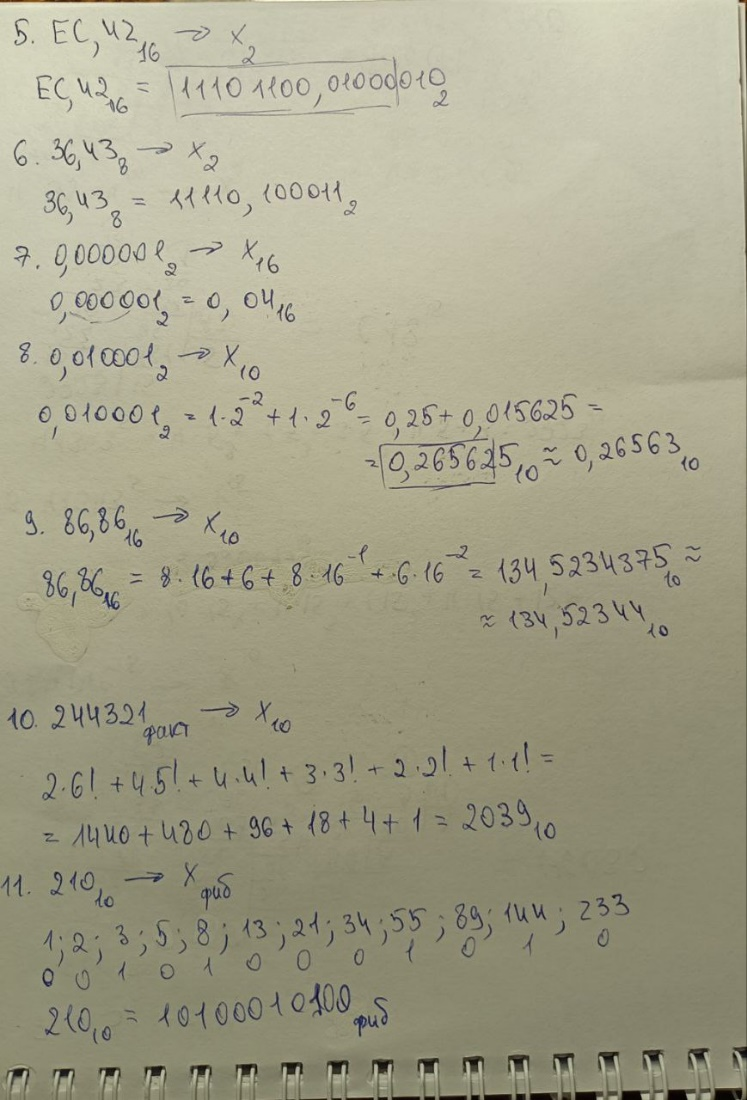 5. EC,42₁₆ → X₂
EC,42₁₆ = 1110 1100,01000010₂
6. 36,43₈ → X₂
36,43₈ = 11110,100011₂
7. 0,000001₂ → X₁₆
0,000001₂ = 0,04₁₆
8. 0,010001₂ → X₁₀
0,010001₂ = 1·2⁻² + 1·2⁻⁶ = 0,25 + 0,015625 =
= 0,265625₁₀ ≈ 0,26563₁₀
9. 86,86₁₆ → X₁₀
86,86₁₆ = 8·16+6+8·16⁻¹+6·16⁻² = 134,5234375₁₀ ≈
≈ 134,52344₁₀
10. 244321факт → X₁₀
2·6! + 4·5! + 4·4! + 3·3! + 2·2! + 1·1! =
= 1440 + 480 + 96 + 18 + 4 + 1 = 2039₁₀
11. 210₁₀ → Xфиб
1; 2; 3; 5; 8; 13; 21; 34; 55; 89; 144; 233
0 0 1 0 1 0 0 0 1 0 1 0
210₁₀ = 10100010100фиб